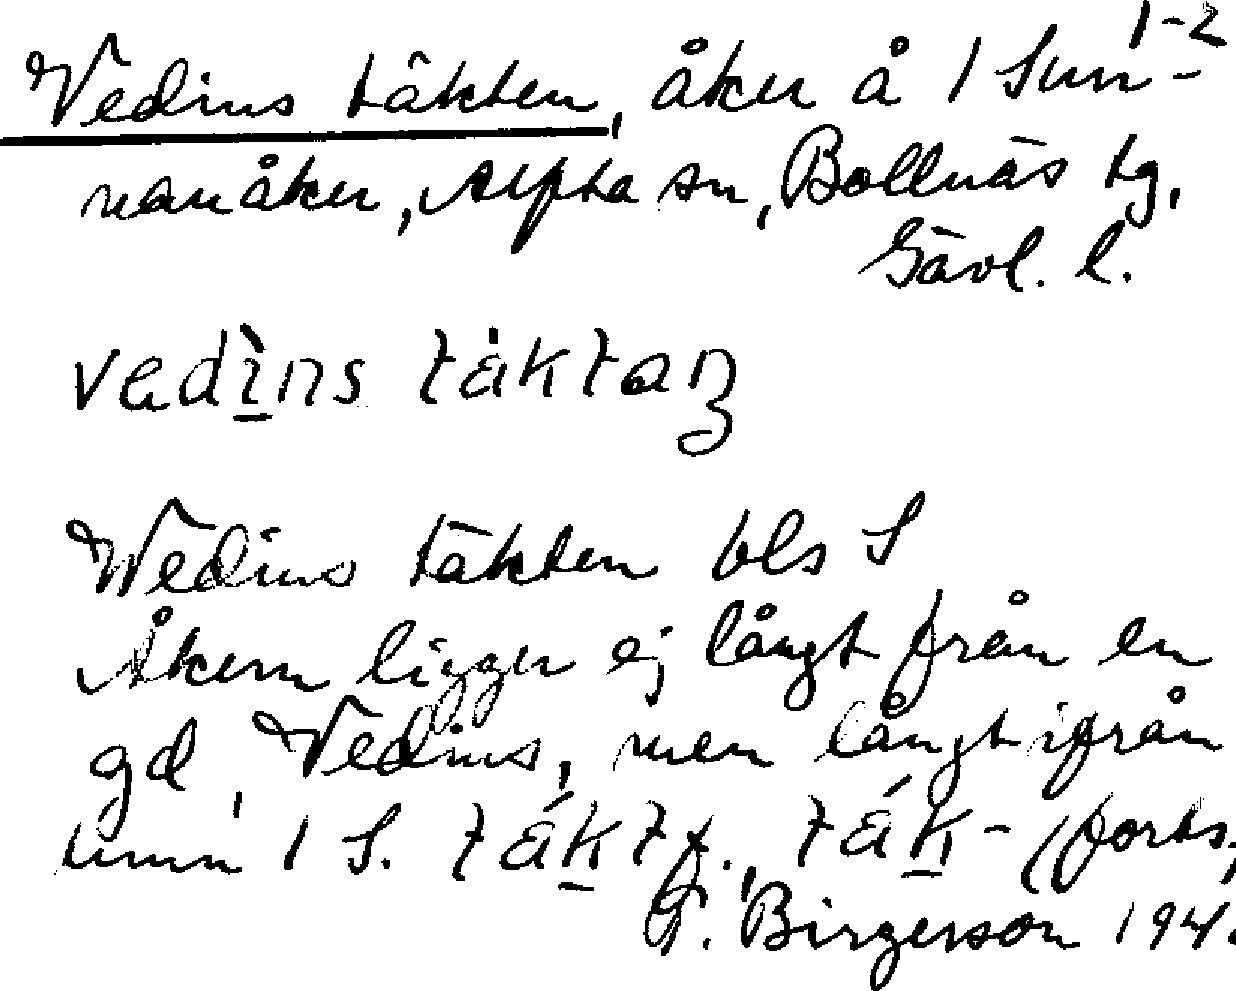 1-2
Vedins täkten, åker å 1 Sun-
nanåker, Alfta sn, Bollnäs tg,
Gävl. l.
vedìns täktaꞑ
Vedins täkten bls S
Åkern ligger ej långt från en
gd, Vedins, men långt ifrån
tomn 1 S. täkt f., täk- (forts,
Birgerson 194